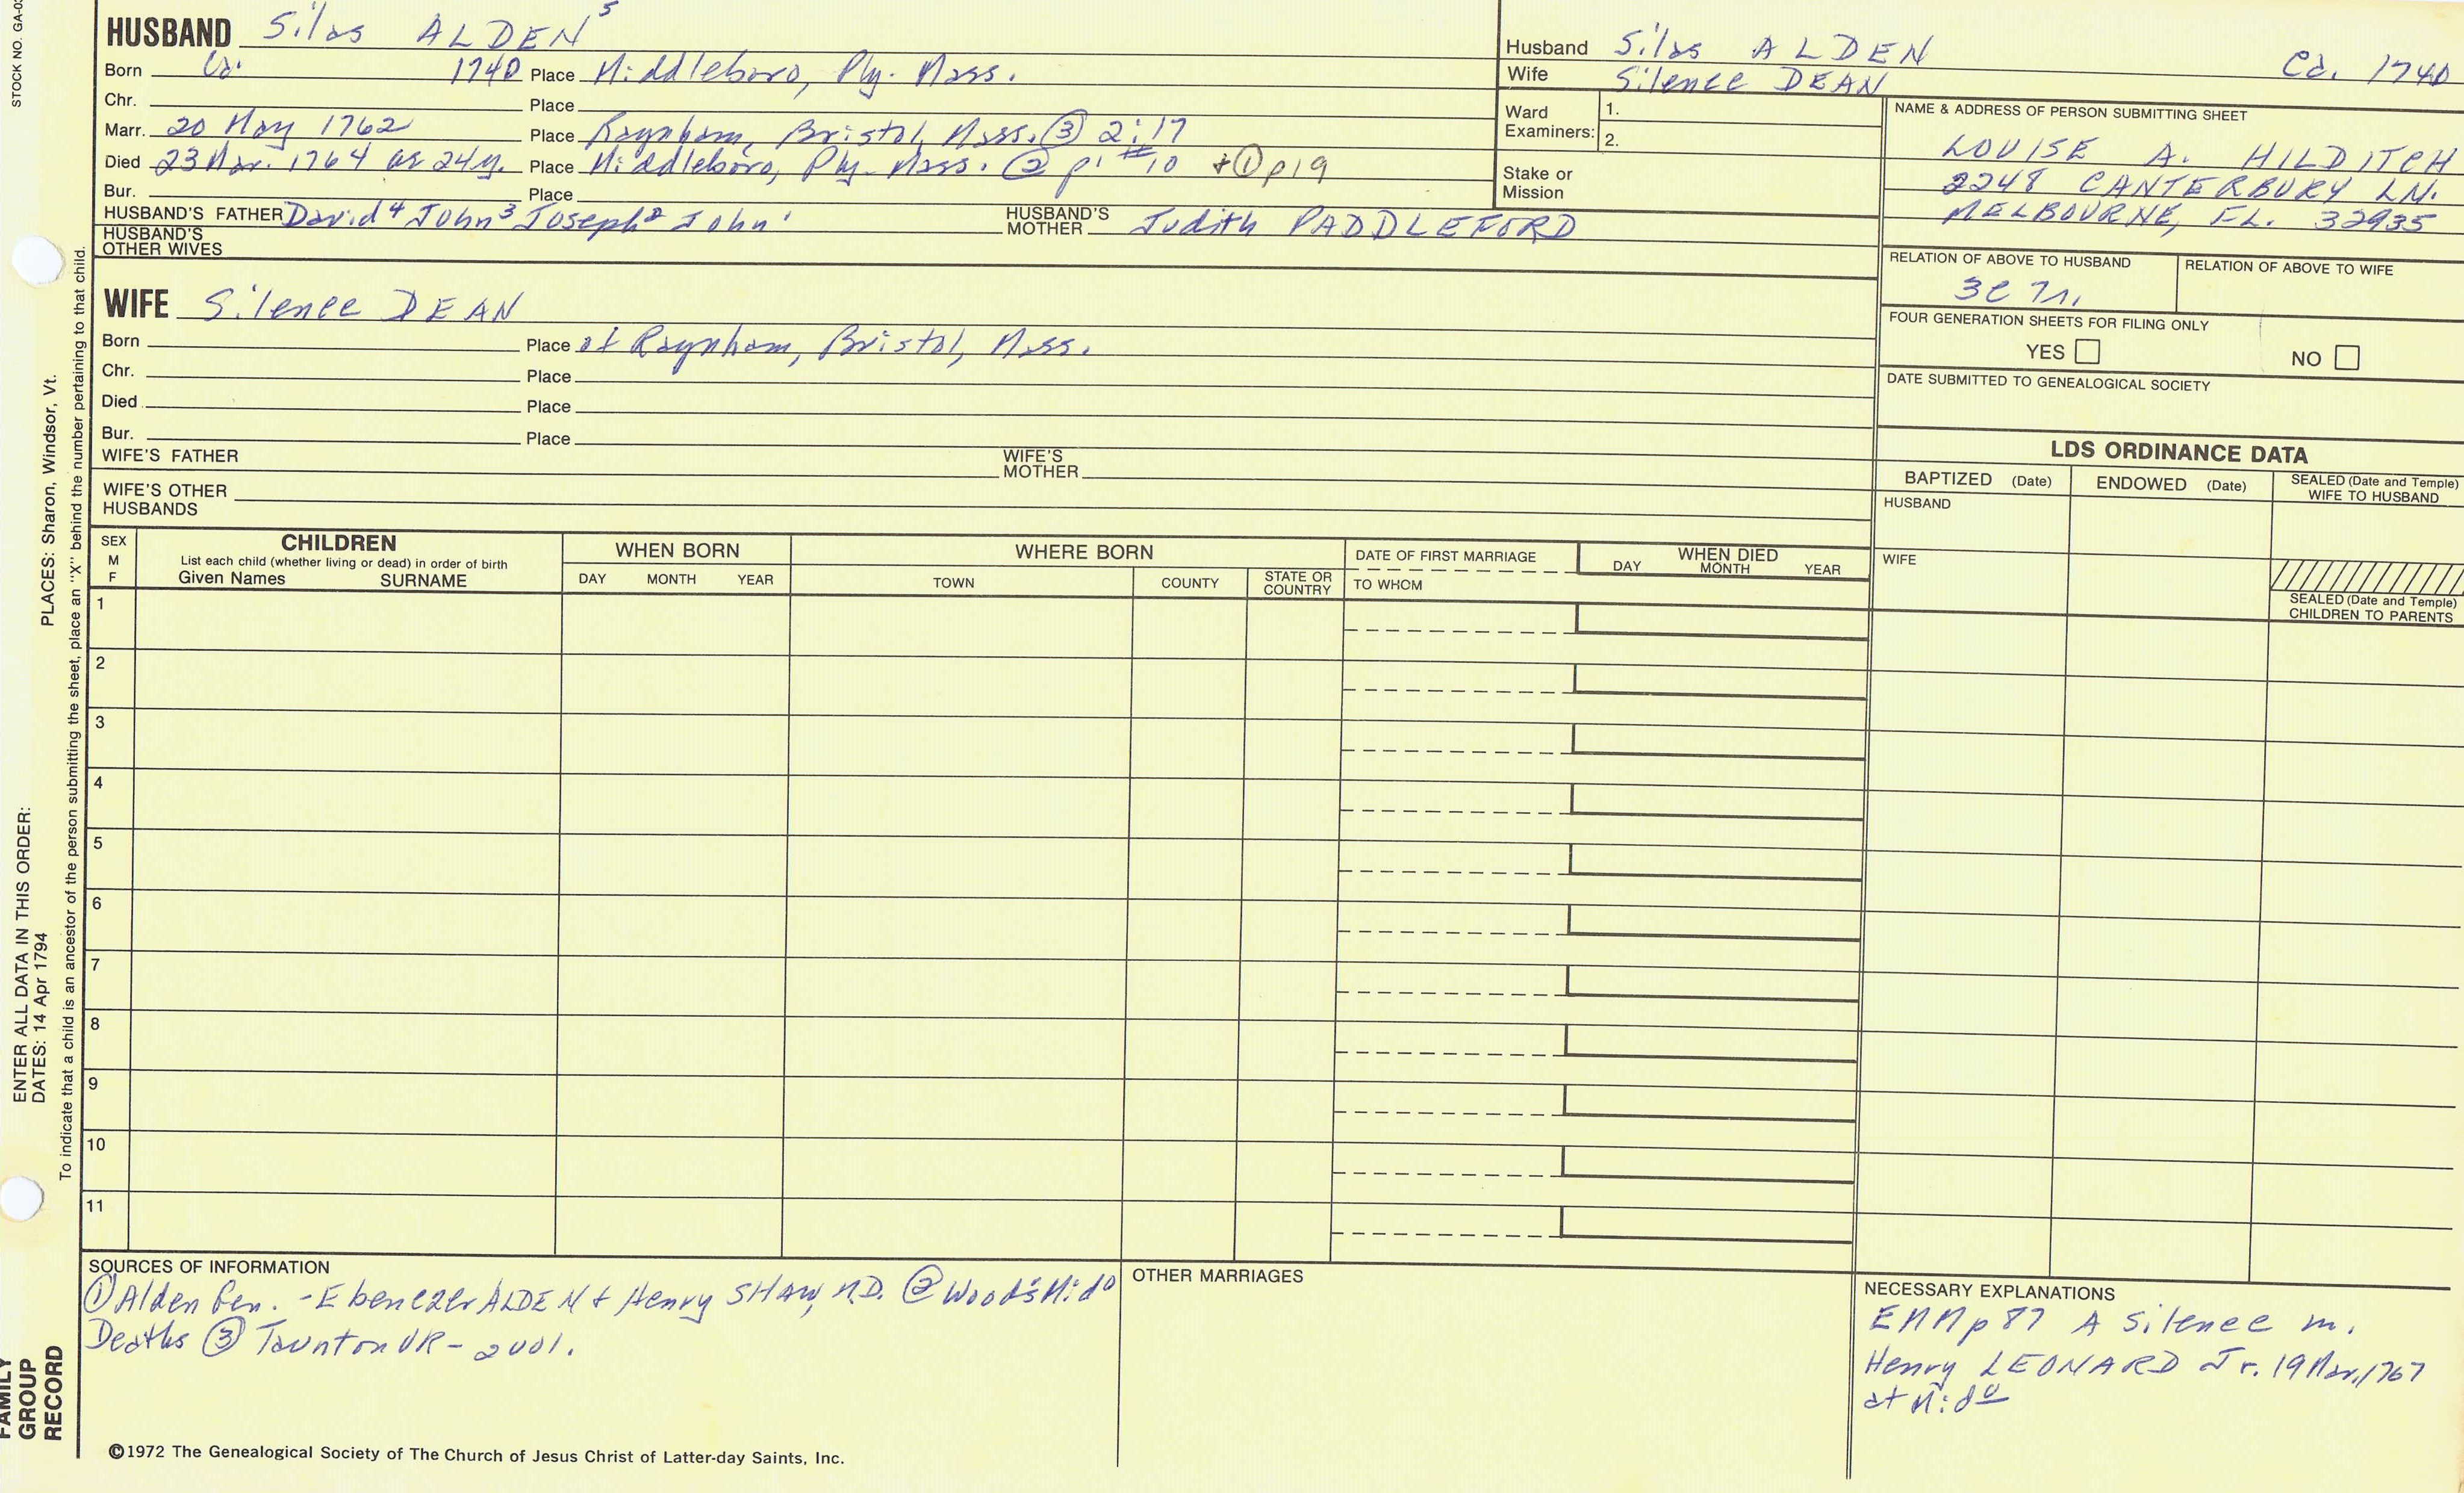 STOCK NO. GA-0
HUSBAND Silas ALDEN⁵
Born Ca. 1740 Place Middleboro, Ply. Mass.
Chr. Place
Marr. 20 May 1762 Place Raynham, Bristol, Mass. ③ 2:17
Died 23 Mar. 1764 ae 24y. Place Middleboro, Ply. Mass. ② p1 #10 + ① p19
Bur. Place
HUSBAND'S FATHER David⁴ John³ Joseph² John¹ HUSBAND'S MOTHER Judith PADDLEFORD
HUSBAND'S OTHER WIVES
Husband Silas ALDEN Ca. 1740
Wife Silence DEAN
Ward Examiners: 1.
2.
Stake or Mission
NAME & ADDRESS OF PERSON SUBMITTING SHEET
LOUISE A. HILDITCH
2248 CANTERBURY LN.
MELBOURNE, FL. 32935
RELATION OF ABOVE TO HUSBAND RELATION OF ABOVE TO WIFE
3C 7r.
FOUR GENERATION SHEETS FOR FILING ONLY
YES NO
DATE SUBMITTED TO GENEALOGICAL SOCIETY
WIFE Silence DEAN
Born Place of Raynham, Bristol, Mass.
Chr. Place
Died Place
Bur. Place
WIFE'S FATHER WIFE'S MOTHER
WIFE'S OTHER HUSBANDS
LDS ORDINANCE DATA
BAPTIZED (Date) ENDOWED (Date) SEALED (Date and Temple) WIFE TO HUSBAND
HUSBAND
WIFE
SEALED (Date and Temple) CHILDREN TO PARENTS
SEX M F
CHILDREN
List each child (whether living or dead) in order of birth
Given Names SURNAME
WHEN BORN
DAY MONTH YEAR
WHERE BORN
TOWN COUNTY STATE OR COUNTRY
DATE OF FIRST MARRIAGE
TO WHOM
WHEN DIED
DAY MONTH YEAR
1
2
3
4
5
6
7
8
9
10
11
SOURCES OF INFORMATION
① Alden Gen. - Ebenezer ALDEN + Henry SHAW, M.D. ② Wood's Midº
Deaths ③ Taunton VR - 2001.
OTHER MARRIAGES
NECESSARY EXPLANATIONS
EMM p87 A Silence m.
Henry LEONARD Jr. 19 Mar. 1767
at Midº
©1972 The Genealogical Society of The Church of Jesus Christ of Latter-day Saints, Inc.
FAMILY GROUP RECORD
ENTER ALL DATA IN THIS ORDER:
DATES: 14 Apr 1794
PLACES: Sharon, Windsor, Vt.
To indicate that a child is an ancestor of the person submitting the sheet, place an "X" behind the number pertaining to that child.